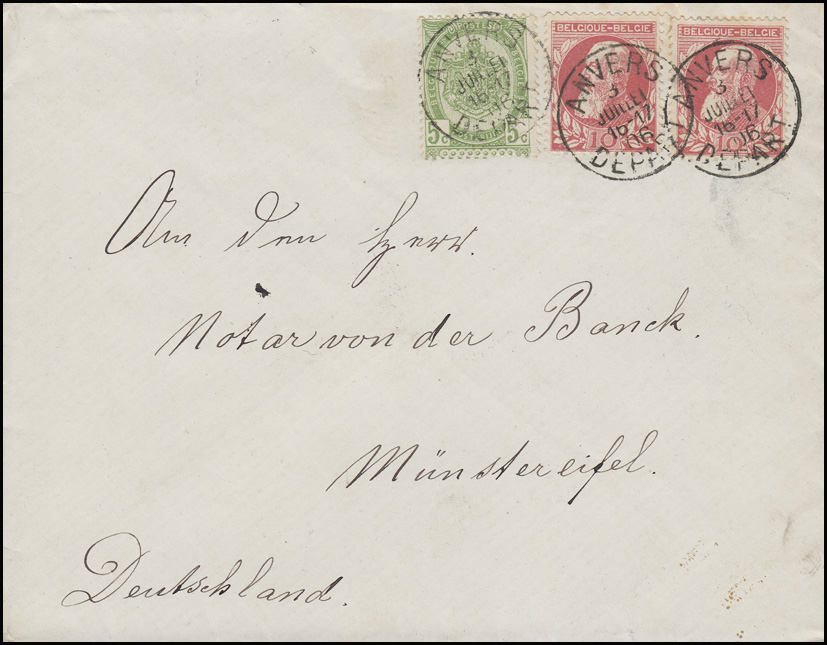 BELGIQUE-BELGIE BELGIQUE-BELGIE
5c 5c
10 10
ANVERS
3
JUILLET
16-17
DEPART
ANVERS
3
JUILLET
16-17
06
DEPART
ANVERS
3
JUILLET
16-17
06
DEPART
An den Herr.
Notar von der Banck.
Münstereifel.
Deutschland.